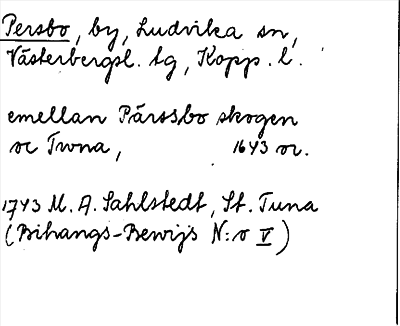 Persbo, by, Ludvika sn,
Västerbergsl. tg, Kopp. l.
emellan Pärssbo skogen
oc Twna, 1643 or.
1743 M. A. Sahlstedt, St. Tuna
(Bihangs-Bewijs N:o V)